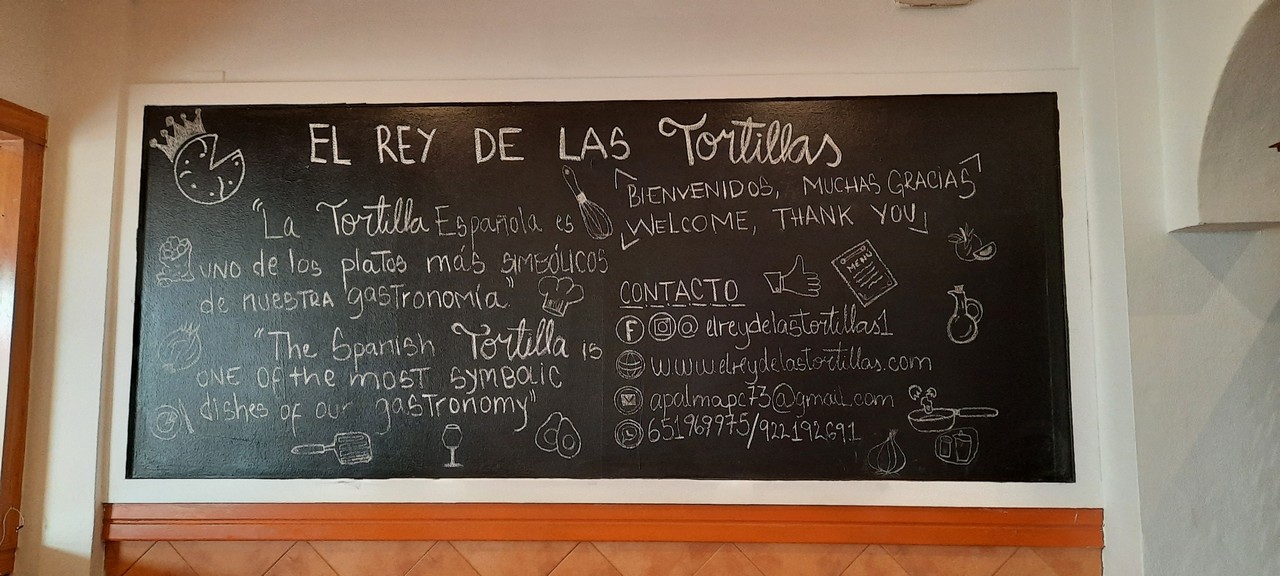 EL REY DE LAS Tortillas
"La Tortilla Española es
UNO de los platos más SIMBÓLICOS
de nuestra gastronomía"
"The Spanish Tortilla is
ONE OF the most SYMBOLIC
dishes of our gastronomy"
BIENVENIDOS, MUCHAS GRACIAS
WELCOME, THANK YOU
MENÚ
CONTACTO
@ elreydelastortillas1
www.elreydelastortillas.com
apalmapc73@gmail.com
651969975/922192691